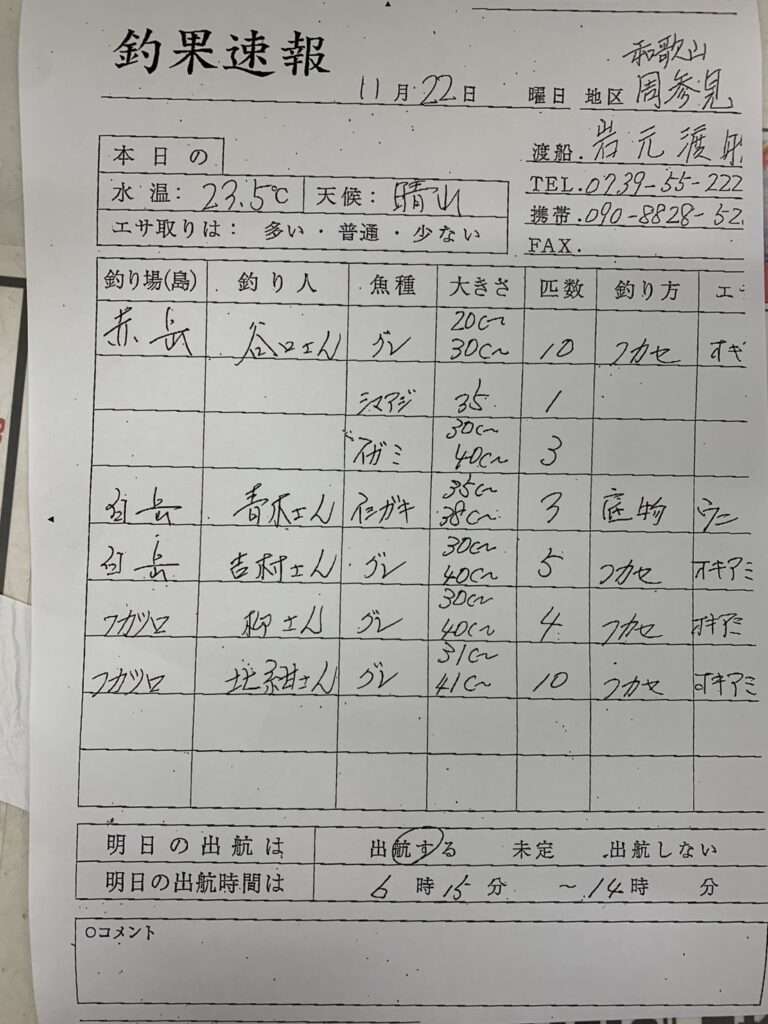 釣果速報
和歌山
11月22日 曜日 地区 周参見
渡船. 岩元渡船
TEL. 0739-55-222
携帯. 090-8828-52
FAX.
本日の
水温: 23.5℃ 天候: 晴
エサ取りは: 多い・普通・少ない
釣り場(島) 釣り人 魚種 大きさ 匹数 釣り方 エ
赤岳 谷口さん グレ 20㎝~30㎝ 10 フカセ オキ
シマアジ 35 1
イガミ 30㎝~40㎝ 3
青木さん イシガキ 35㎝~38㎝ 3 底物 ウニ
吉村さん グレ 30㎝~40㎝ 5 フカセ オキアミ
フカツロ 柳さん グレ 30㎝~40㎝ 4 フカセ オキアミ
フカツロ グレ 31㎝~41㎝ 10 フカセ オキアミ
明日の出航は 出航する 未定 出航しない
明日の出航時間は 6時15分 ~14時 分
○コメント